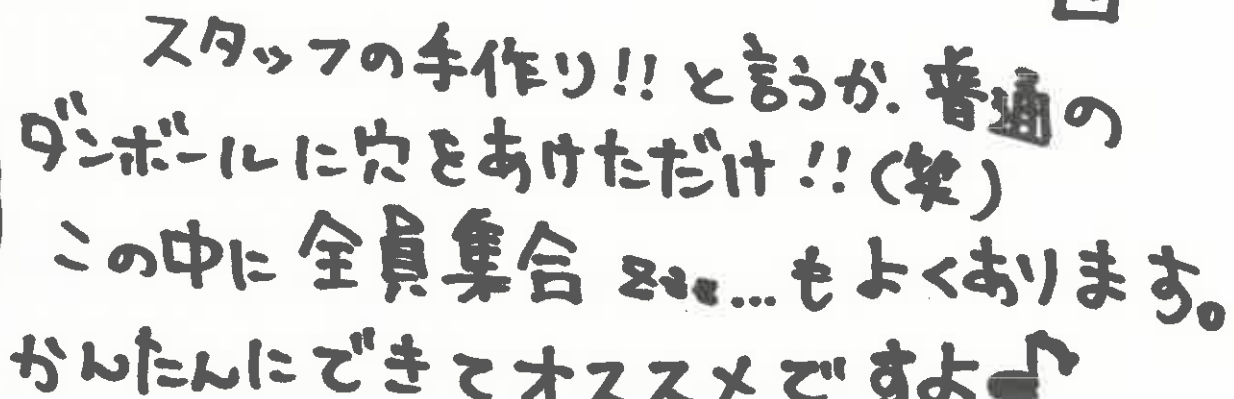 スタッフの手作り!!と言うか、普通の
ダンボールに穴をあけただけ!!(笑)
この中に全員集合zzz...もよくあります。
かんたんにできてオススメですよ♪